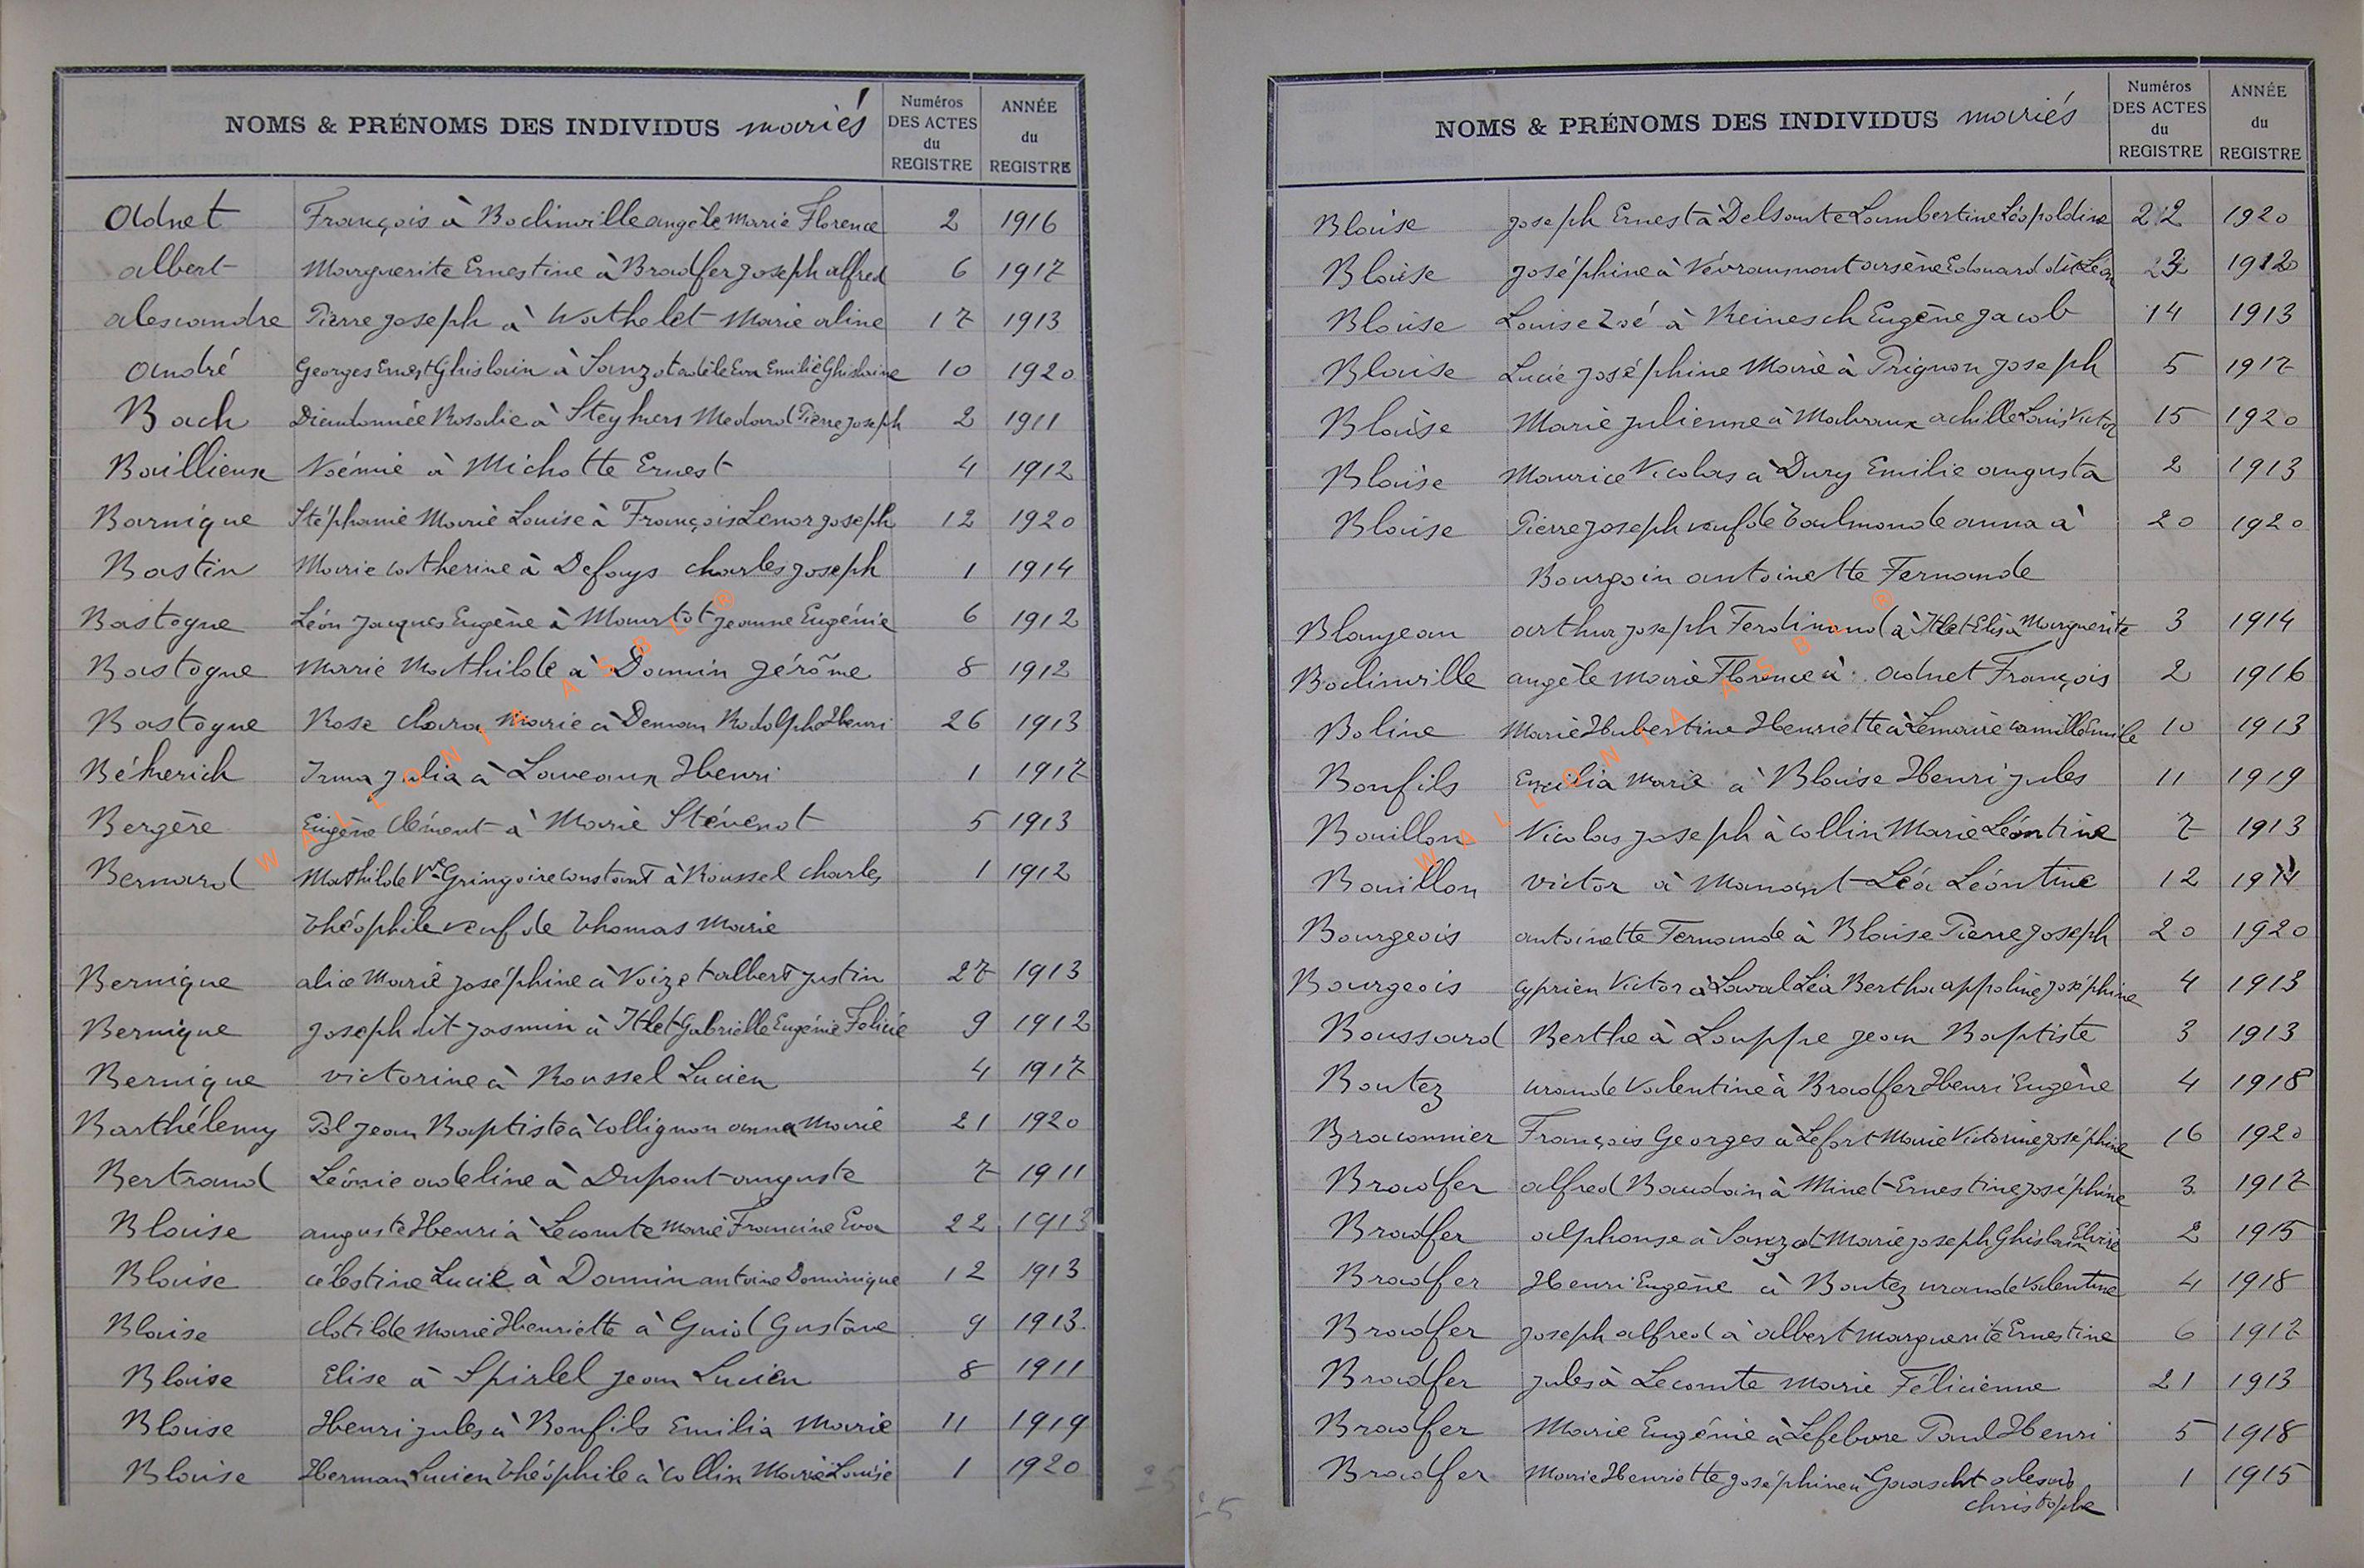 NOMS & PRÉNOMS DES INDIVIDUS mariés
Numéros DES ACTES du REGISTRE
ANNÉE du REGISTRE
Adnet François à Bodinville angèle Marie Florence 2 1916
albert Marguerite Ernestine à Bradfer joseph alfred 6 1917
alexandre Pierre joseph à Wathelet Marie aline 17 1913
André Georges Ernest Ghislain à Sanzot adèle Eva Emilie Ghislaine 10 1920
Bach Dieudonnée Rosalie à Steykers Medard Pierre joseph 2 1911
Baillieux Noémie à Michotte Ernest 4 1912
Barnique Stéphanie Marie Louise à François Lenor joseph 12 1920
Bastin Marie catherine à Defays charles joseph 1 1914
Bastogne Léon jacques Eugène à Mourtot jeanne Eugénie 6 1912
Bastogne Marie Mathilde à Dannin jérôme 8 1912
Bastogne Rose clara Marie à Deman Rodolphe Henri 26 1913
Békerich Irma julia à Laveaux Henri 1 1917
Bergère Eugène clément à Marie Stévenot 5 1913
Bernard Mathilde Vve Gringoire constant à Roussel charles 1 1912
théophile veuf de thomas Marie
Bernique alice Marie joséphine à Voizet albert justin 27 1913
Bernique joseph dit jasmin à Itlet Gabrielle Eugénie Felicie 9 1912
Bernique victorine à Roussel Lucien 4 1917
Barthélemy Pol jean Baptiste à collignon anna Marie 21 1920
Bertrand Léonie adeline à Dupont auguste 7 1911
Blaise auguste Henri à Lecomte Marie Francine Eva 22 1913
Blaise célestine Lucie à Dannin antoine Dominique 12 1913
Blaise clotilde Marie Henriette à Guiol Gustave 9 1913
Blaise Elise à Spirlel jean Lucien 8 1911
Blaise Henri jules à Bonfils Emilia Marie 11 1919
Blaise Herman Lucien théophile à collin Marie Louise 1 1920
25
NOMS & PRÉNOMS DES INDIVIDUS mariés
Numéros DES ACTES du REGISTRE
ANNÉE du REGISTRE
Blaise joseph Ernest à Delsaute Lambertine Léopoldine 22 1920
Blaise joséphine à Névraumont arsène Edouard dit Léon 1920
Blaise Louise Zoé à Reinesch Eugène jacob 14 1913
Blaise Lucie joséphine Marie à Prignon joseph 5 1917
Blaise Marie julienne à Malvaux achille Louis Victor 15 1920
Blaise Maurice Nicolas à Dury Emilie augusta 2 1913
Blaise Pierre joseph veuf de taulmonde anna à 20 1920
Bourgoin antoinette Fernande
Blanjean arthur joseph Ferdinand à Itlet Elisa Marguerite 3 1914
Bodinville angèle Marie Florence à Adnet François 2 1916
Boline Marie Hubertine Henriette à Lemaire camille Emile 10 1913
Bonfils Emilia Marie à Blaise Henri jules 11 1919
Bouillon Nicolas joseph à collin Marie Léontine 7 1913
Bouillon victor à Manant Léa Léontine 12
Bourgeois antoinette Fernande à Blaise Pierre joseph 20 1920
Bourgeois cyprien Victor à Laval Léa Bertha appoline joséphine 4 1913
Boussard Berthe à Louppe jean Baptiste 3 1913
Boutez urande Valentine à Bradfer Henri Eugène 4 1918
Braconnier François Georges à Lefort Marie Victorine joséphine 16 1920
Bradfer alfred Baudoin à Minet Ernestine joséphine 3 1917
Bradfer alphonse à Sanzot Marie joseph Ghislain Elvire 2 1915
Bradfer Henri Eugène à Boutez urande Valentine 4 1918
Bradfer joseph alfred à albert Marguerite Ernestine 6 1917
Bradfer jules à Lecomte Marie Félicienne 21 1913
Bradfer Marie Eugénie à Lefebvre Paul Henri 5 1918
Bradfer Marie Henriette joséphine à Goascht alexis 1 1915
christophe
25
WALLONIA ASBL ®
WALLONIA ASBL ®